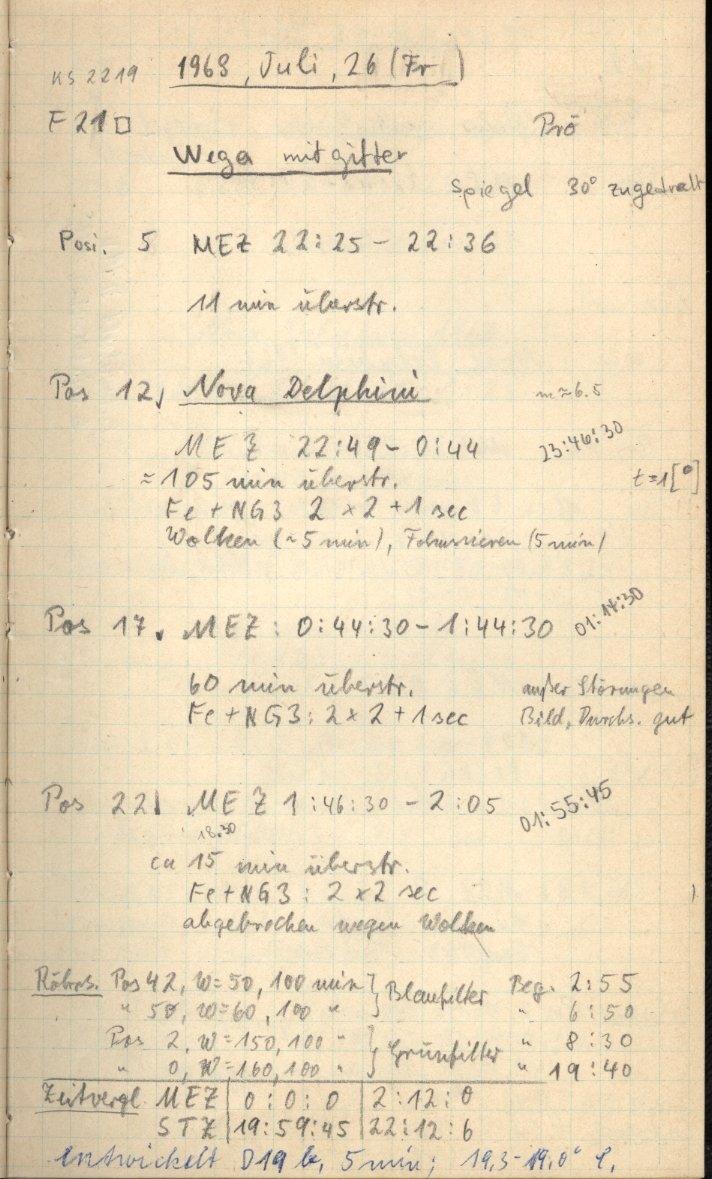 KS 2219 1968, Juli, 26 (Fr)
F 21 □ Prö
Wega mit gitter
Spiegel 30° zugedreht
Posi. 5 MEZ 22:25 - 22:36
11 min überstr.
Pos 12, Nova Delphini m≈6.5
MEZ 22:49 - 0:44 23:46:30
≈ 105 min überstr. t=1[°]
Fe + NG3 2 x 2 + 1 sec
Wolken (~5 min), Fokussieren (5 min)
Pos 17. MEZ: 0:44:30 - 1:44:30 01:14:30
60 min überstr. außer Störungen
Fe + NG3: 2 x 2 + 1 sec Bild, Durchs. gut
Pos 22. MEZ 1:46:30 - 2:05 01:55:45
18:30
ca 15 min überstr.
Fe + NG3: 2 x 2 sec
abgebrochen wegen Wolken
Röhrs. Pos 42, W=50, 100 min } Blaufilter Beg. 2:55
" 50, W=60, 100 " " 6:50
Pos 2, W=150, 100 " } Grünfilter " 8:30
" 0, W=160, 100 " " 19:40
Zeitvergl. MEZ | 0:0:0 | 2:12:0
STZ | 19:59:45 | 22:12:6
entwickelt D19 b, 5 min; 19,3 - 19,0°